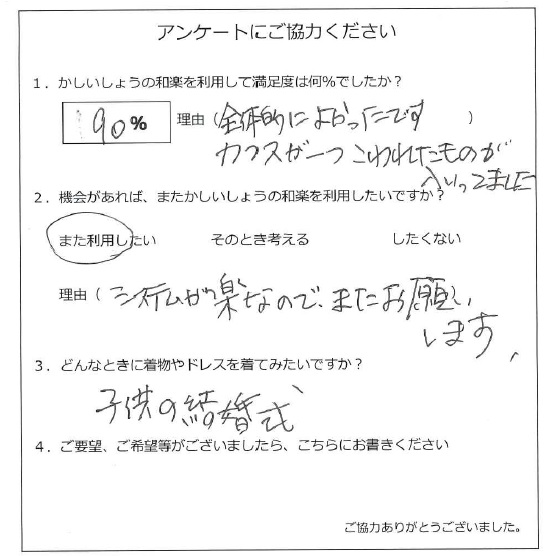 アンケートにご協力ください
1．かしいしょうの和楽を利用して満足度は何%でしたか？
90%
理由（全体的によかったです）
カフスが一つこわれたものが
入いってました
2．機会があれば、またかしいしょうの和楽を利用したいですか？
また利用したい　そのとき考える　したくない
理由（システムが楽なので、またお願い
します。
3．どんなときに着物やドレスを着てみたいですか？
子供の結婚式
4．ご要望、ご希望等がございましたら、こちらにお書きください
ご協力ありがとうございました。